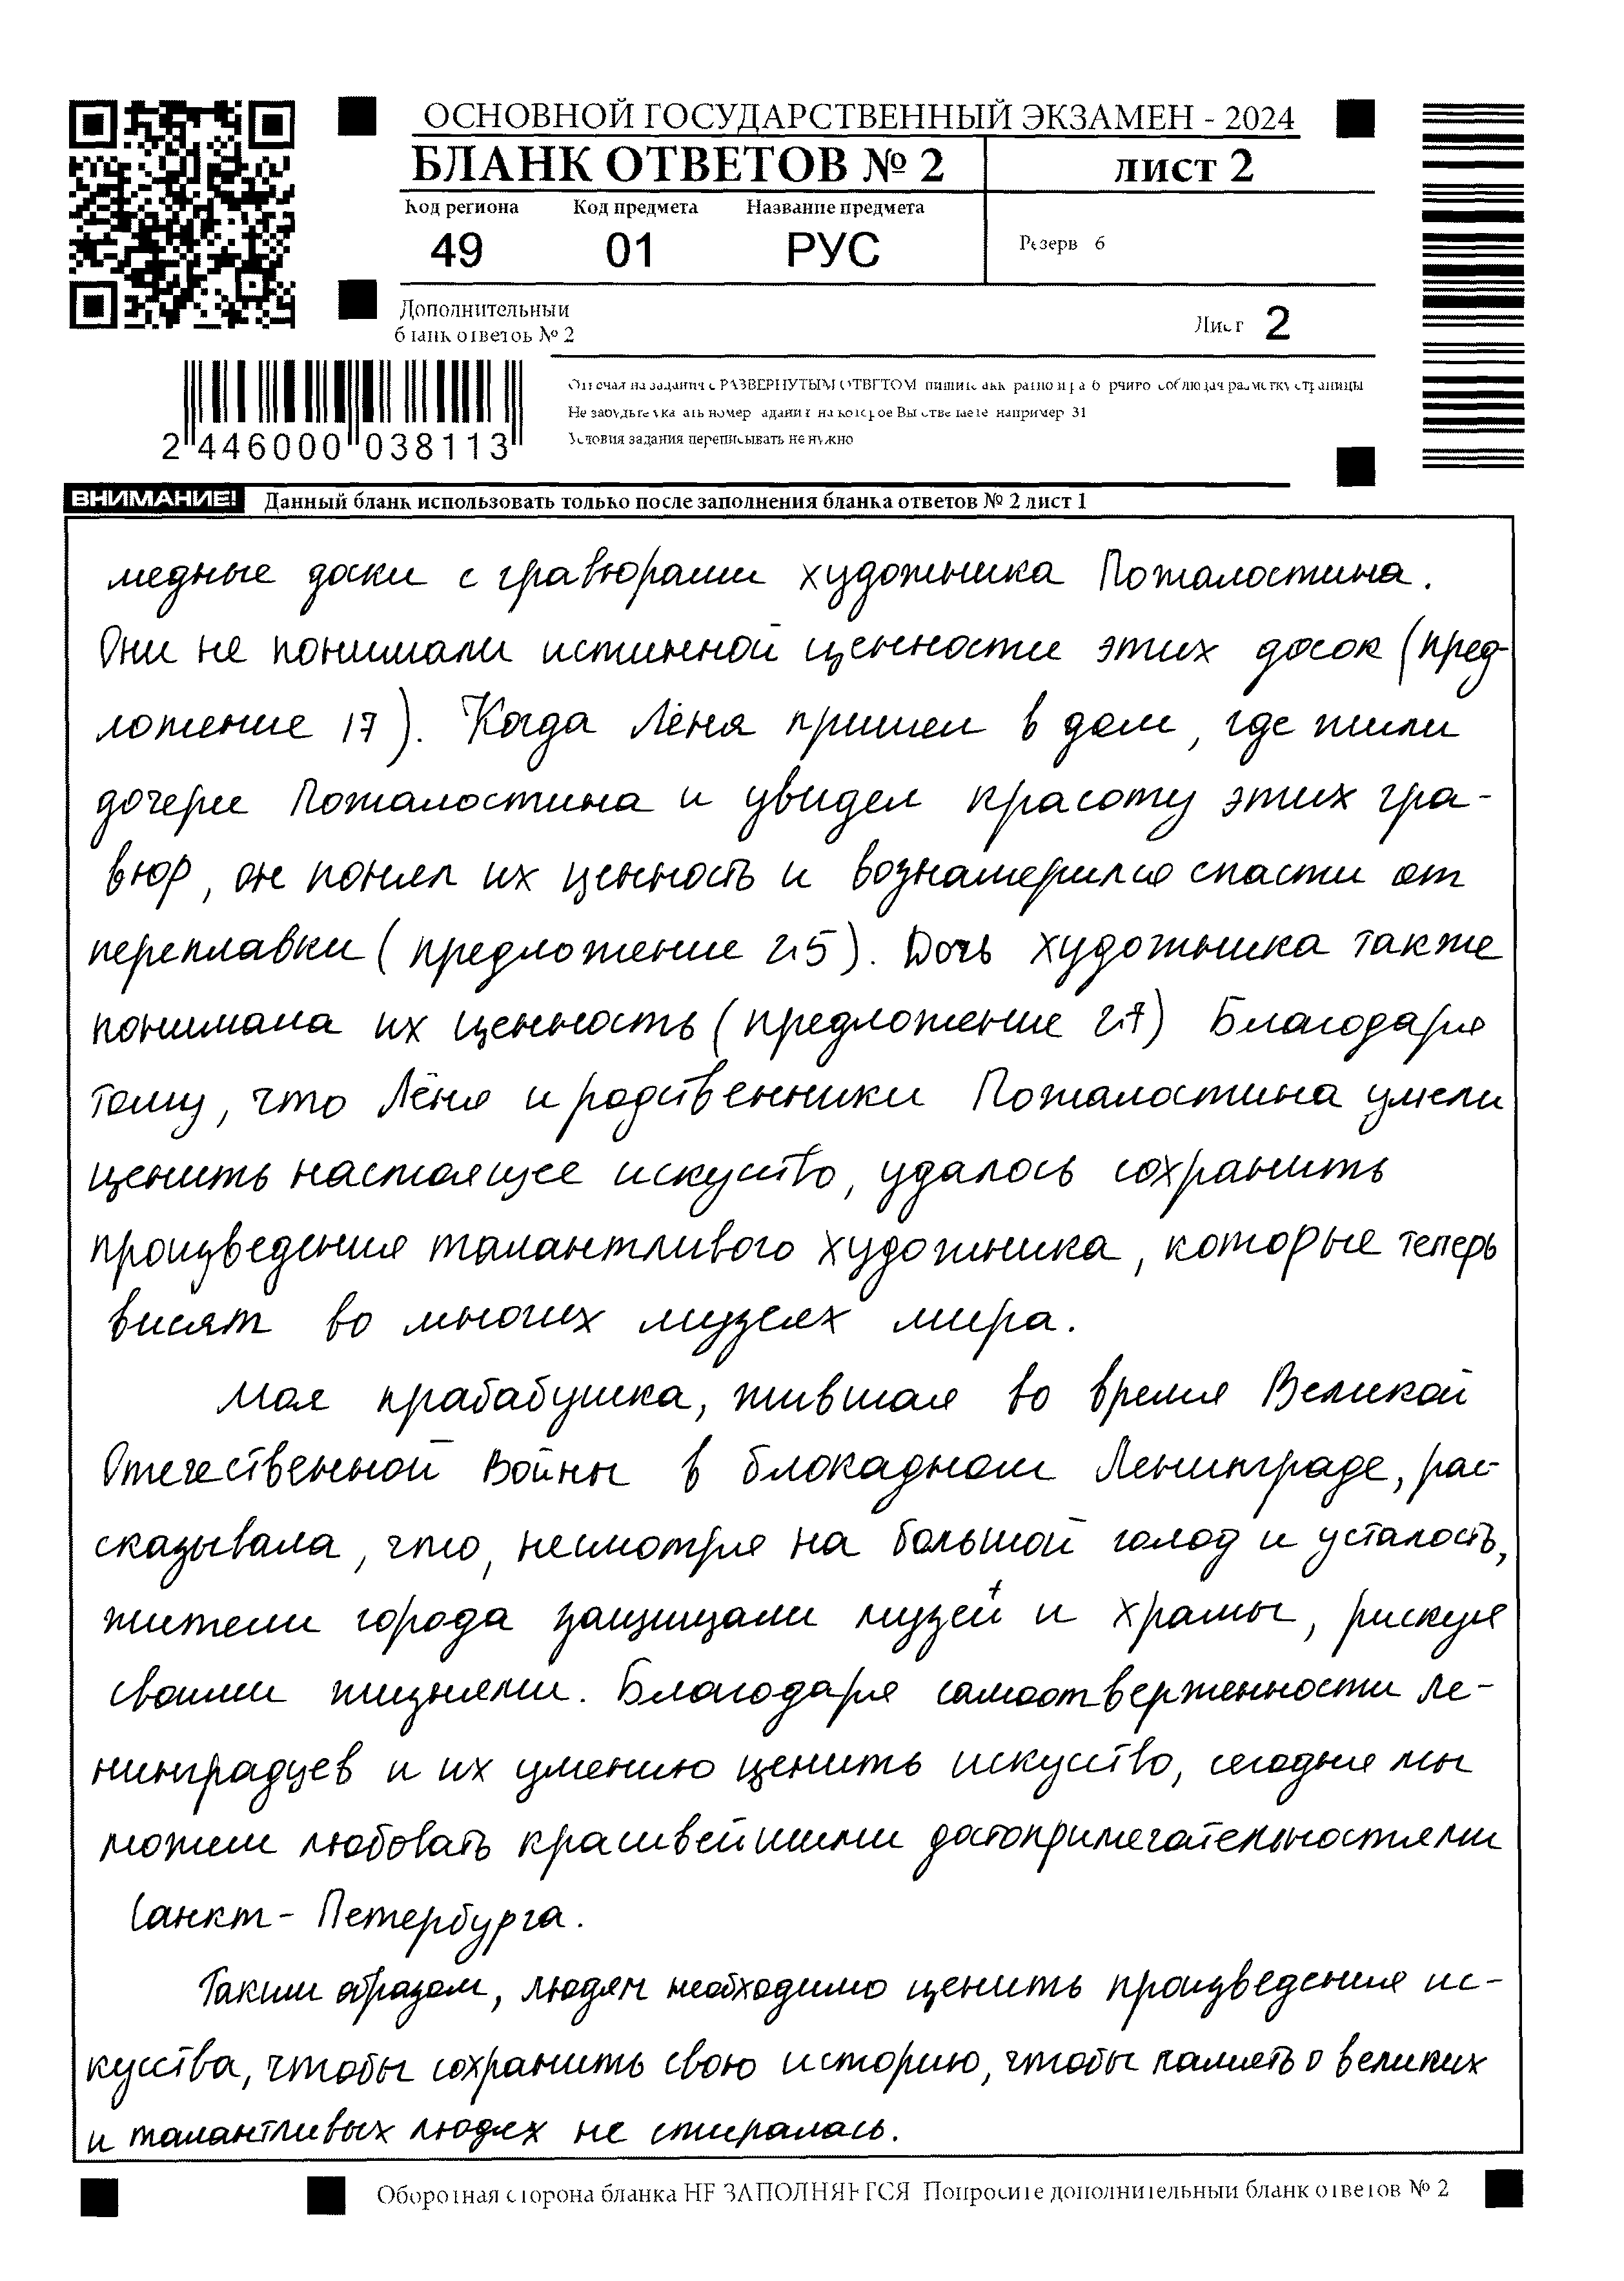 ОСНОВНОЙ ГОСУДАРСТВЕННЫЙ ЭКЗАМЕН - 2024
БЛАНК ОТВЕТОВ № 2
лист 2
Код региона Код предмета Название предмета
49 01 РУС
Резерв 6
Дополнительный
бланк ответов № 2
Лист 2
Отвечая на задания с РАЗВЕРНУТЫМ ОТВЕТОМ, пишите аккуратно и разборчиво, соблюдая разметку страницы
Не забудьте указать номер задания, на которое Вы отвечаете, например 31
Условия задания переписывать не нужно
2 446000 038113
ВНИМАНИЕ! Данный бланк использовать только после заполнения бланка ответов № 2 лист 1
медные доски с гравюрами художника Пожалостина.
Они не понимали истинной ценности этих досок (пред-
ложение 17). Когда Лёня пришел в дом, где жили
дочери Пожалостина и увидел красоту этих гра-
вюр, он понял их ценность и вознамерился спасти от
переплавки (предложение 25). Дочь художника также
понимала их ценность (предложение 27) Благодаря
тому, что Лёня и родственники Пожалостина умели
ценить настоящее искуство, удалось сохранить
произведения талантливого художника, которые теперь
висят во многих музеях мира.
Моя прабабушка, жившая во время Великой
Отечественной Войны в блокадном Ленинграде, рас-
сказывала, что, несмотря на большой голод и усталость,
жители города защищали музеи и храмы, рискуя
своими жизнями. Благодаря самоотверженности ле-
нинградцев и их умению ценить искуство, сегодня мы
можем любовать красивейшими достопримечательностями
Санкт-Петербурга.
Таким образом, людям необходимо ценить произведения ис-
куства, чтобы сохранить свою историю, чтобы память о великих
и талантливых людях не стиралась.
Оборотная сторона бланка НЕ ЗАПОЛНЯЕТСЯ Попросите дополнительный бланк ответов № 2